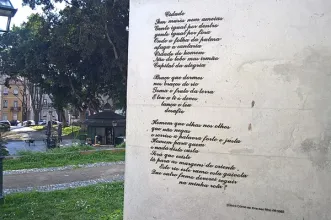 Cidade
Sem muros nem ameias
Gente igual por dentro
gente igual por fora
Onde a folha da palma
afaga a cantaria
Cidade do homem
Não do lobo mas irmão
Capital da alegria
Braço que dormes
nos braços do rio
Toma o fruto da terra
E teu a ti o deves
lança o teu
desafio
Homem que olhas nos olhos
que não negas
o sorriso a palavra forte e justa
Homem para quem
o nada disto custa
Será que existe
lá para as margens do oriente
Este rio este rumo esta gaivota
Que outro fumo deverei seguir
na minha rota ?